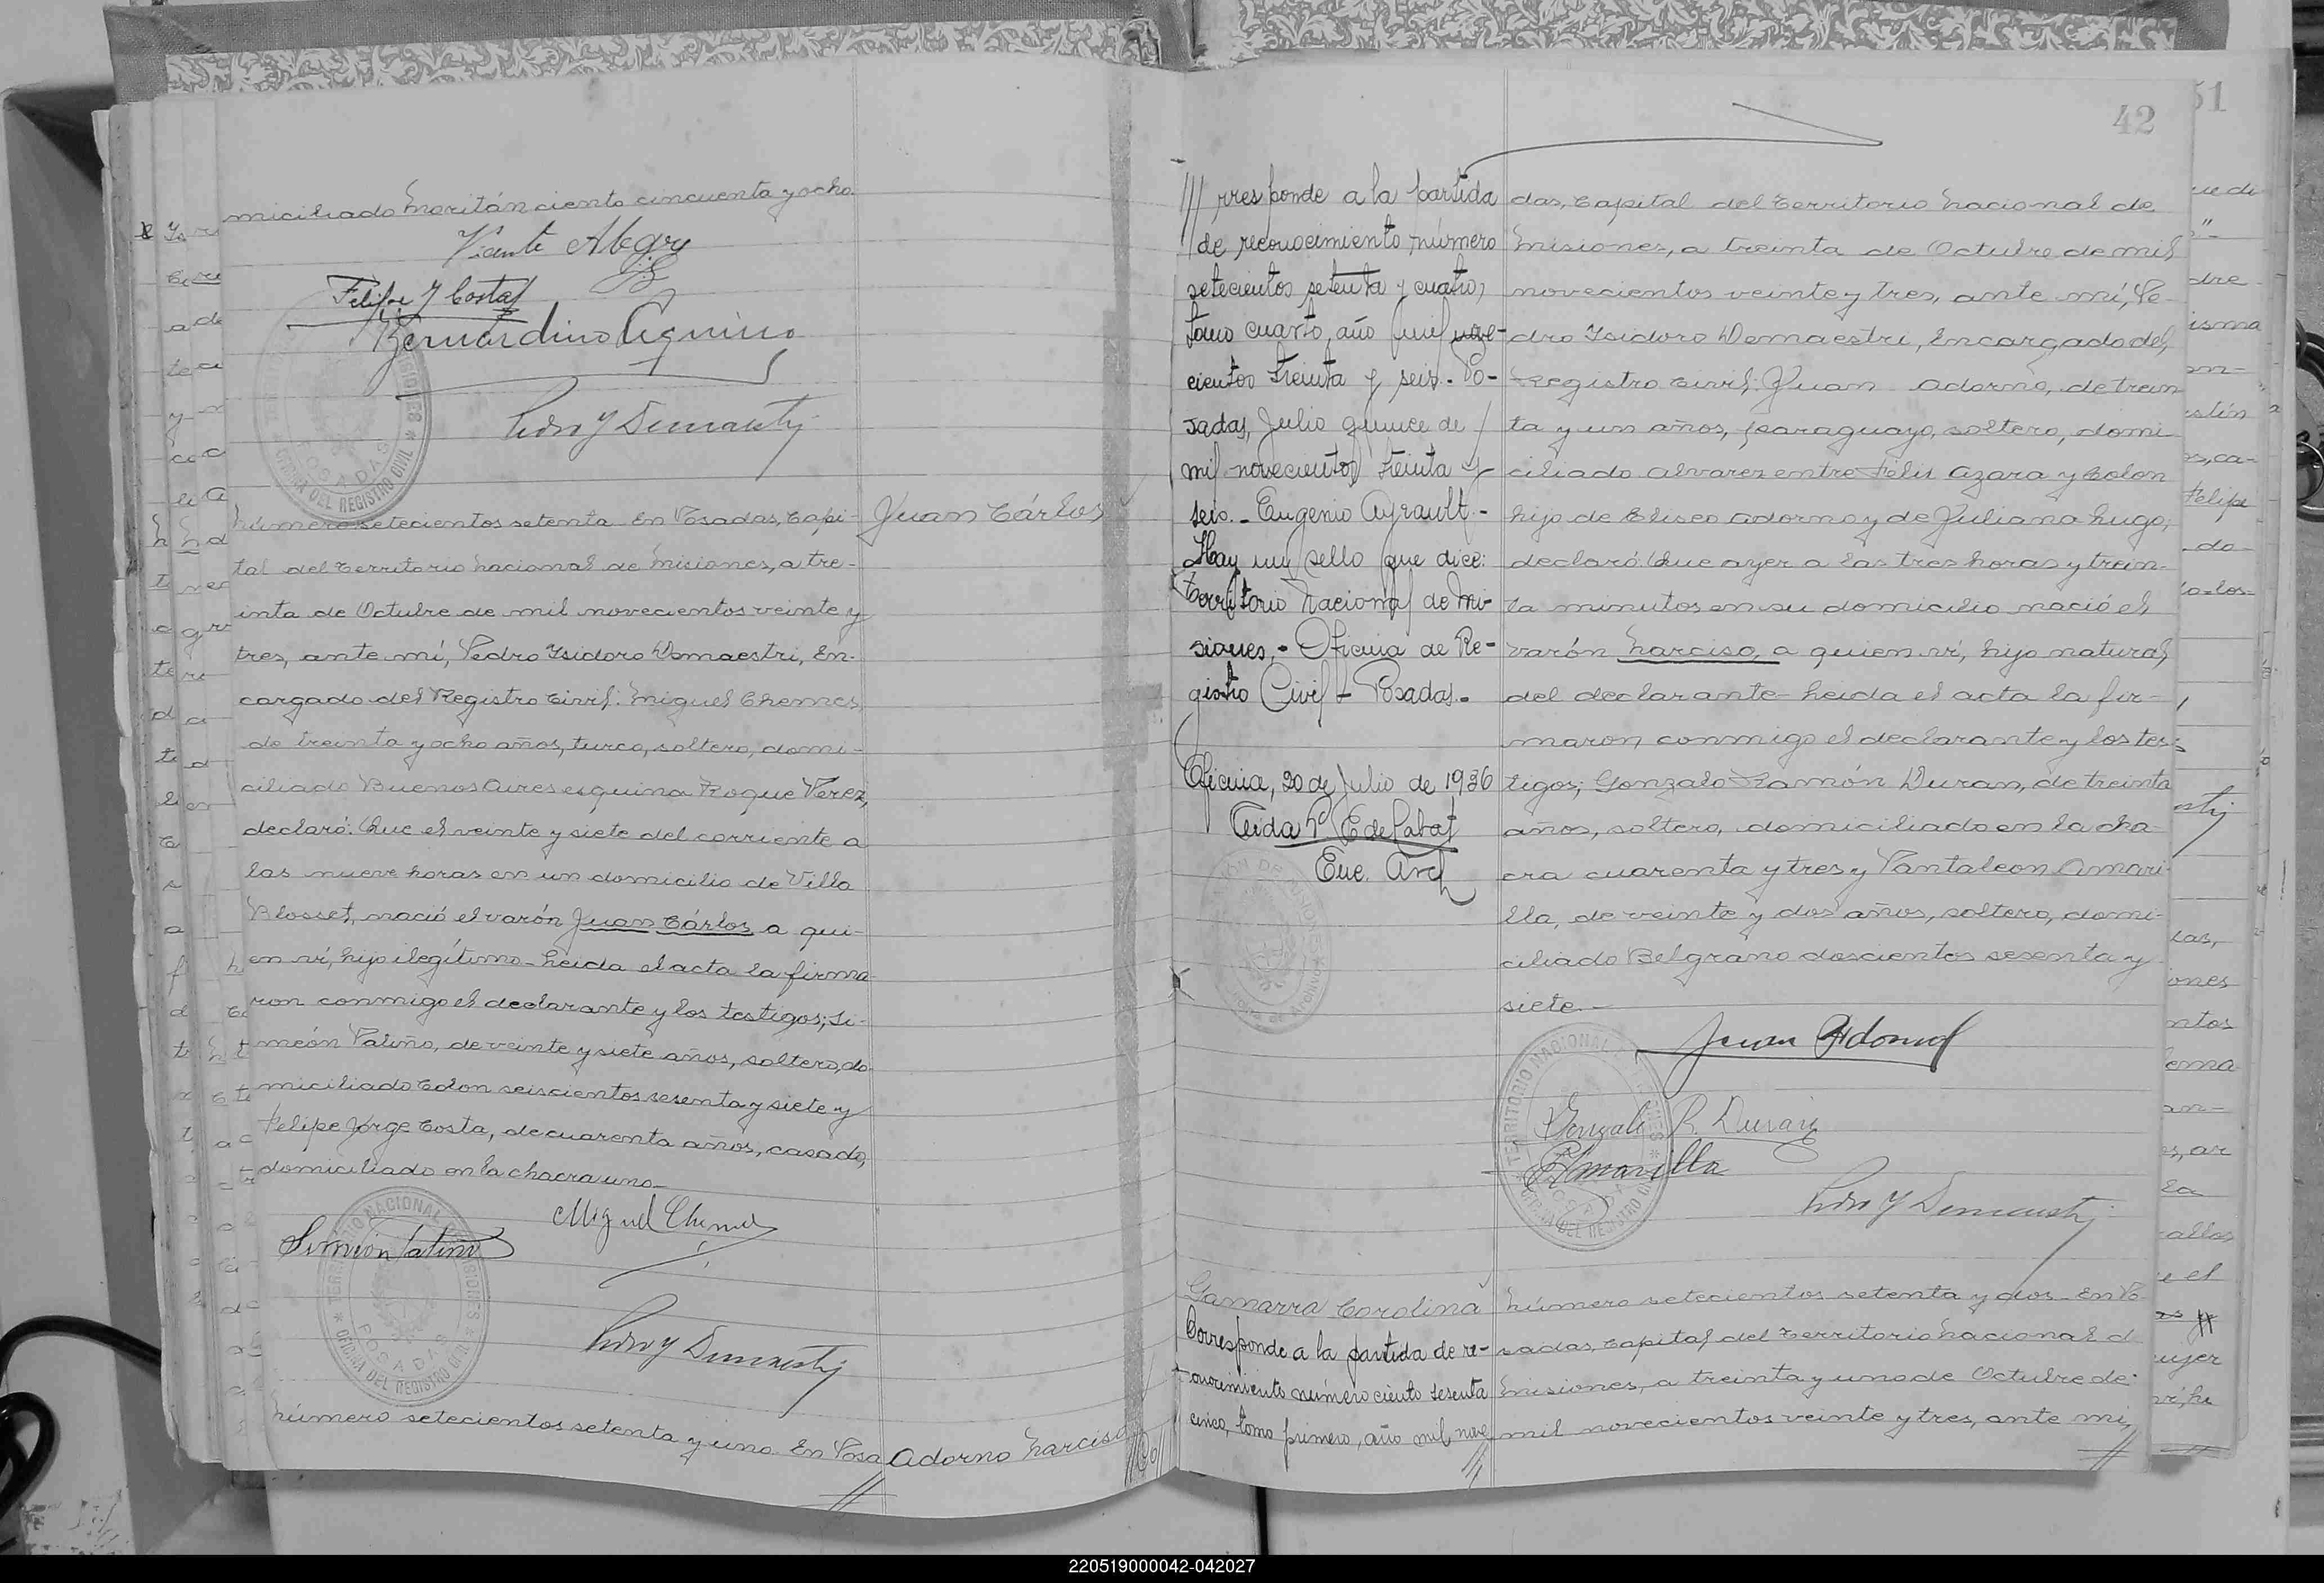 miciliado Moritán ciento cincuenta y ocho.
Vicente Alegre
Felipe J Costa
Bernardino Aquino
Pedro Y Demaestri
TERRITORIO NACIONAL DE MISIONES
OFICINA DEL REGISTRO CIVIL
POSADAS
Juan Cárlos
Número setecientos setenta. En Posadas, Capi-
tal del Territorio Nacional de Misiones, a tre-
inta de Octubre de mil novecientos veinte y
tres, ante mí, Pedro Isidoro Demaestri, En-
cargado del Registro Civil: Miguel Chemes
de treinta y ocho años, turco, soltero, domi-
ciliado Buenos Aires esquina Roque Perez,
declaró: Que el veinte y siete del corriente a
las nueve horas en un domicilio de Villa
Blosset, nació el varón Juan Cárlos a qui-
en ví, hijo ilegítimo- Leida el acta la firma-
ron conmigo el declarante y los testigos; Si-
meón Patiño, de veinte y siete años, soltero, do-
miciliado Colon seiscientos sesenta y siete y
Felipe Jorge Costa, de cuarenta años, casado,
domiciliado en la chacra uno-
Miguel Chemes
Simeón Patiño
Pedro Y Demaestri
TERRITORIO NACIONAL DE MISIONES
OFICINA DEL REGISTRO CIVIL
POSADAS
Número setecientos setenta y uno. En Posa
Adorno Narciso
Co
42
51
rresponde a la partida
de reconocimiento número
setecientos setenta y cuatro,
tomo cuarto, año mil nove-
cientos treinta y seis.- Po-
sadas, Julio quince de
mil novecientos treinta y
seis.- Eugenio Ayrault.-
Hay un sello que dice:
Territorio Nacional de Mi-
siones,- Oficina de Re-
gistro Civil- Posadas.-
Oficina, 20 de Julio de 1936
E de Labat
Enc. Arch
das, Capital del Territorio Nacional de
Misiones, a treinta de Octubre de mil
novecientos veinte y tres, ante mí, Pe-
dro Isidoro Demaestri, Encargado del
Registro Civil: Juan Adorno, de trein
ta y un años, paraguayo, soltero, domi
ciliado Alvarez entre Félix Azara y Colon
hijo de Eliseo Adorno y de Juliana Lugo,
declaró: Que ayer a las tres horas y trein-
ta minutos en su domicilio nació el
varón Narciso, a quien ví, hijo natural
del declarante- Leida el acta la fir-
maron conmigo el declarante y los tes-
tigos; Gonzalo Ramón Duran, de treinta
años, soltero, domiciliado en la cha-
cra cuarenta y tres y Pantaleon Amari-
lla, de veinte y dos años, soltero, domi-
ciliado Belgrano doscientos sesenta y
siete-
Juan Adorno
Gonzalo R. Duran
P Amarilla
Pedro Y Demaestri
TERRITORIO NACIONAL DE MISIONES
OFICINA DEL REGISTRO CIVIL
POSADAS
Gamarra Corolina
Corresponde a la partida de re-
conocimiento número ciento sesenta
cinco, tomo primero, año mil nove
Número setecientos setenta y dos- En Po-
sadas, Capital del Territorio Nacional d
Misiones, a treinta y uno de Octubre de
mil novecientos veinte y tres, ante mí,
220519000042-042027